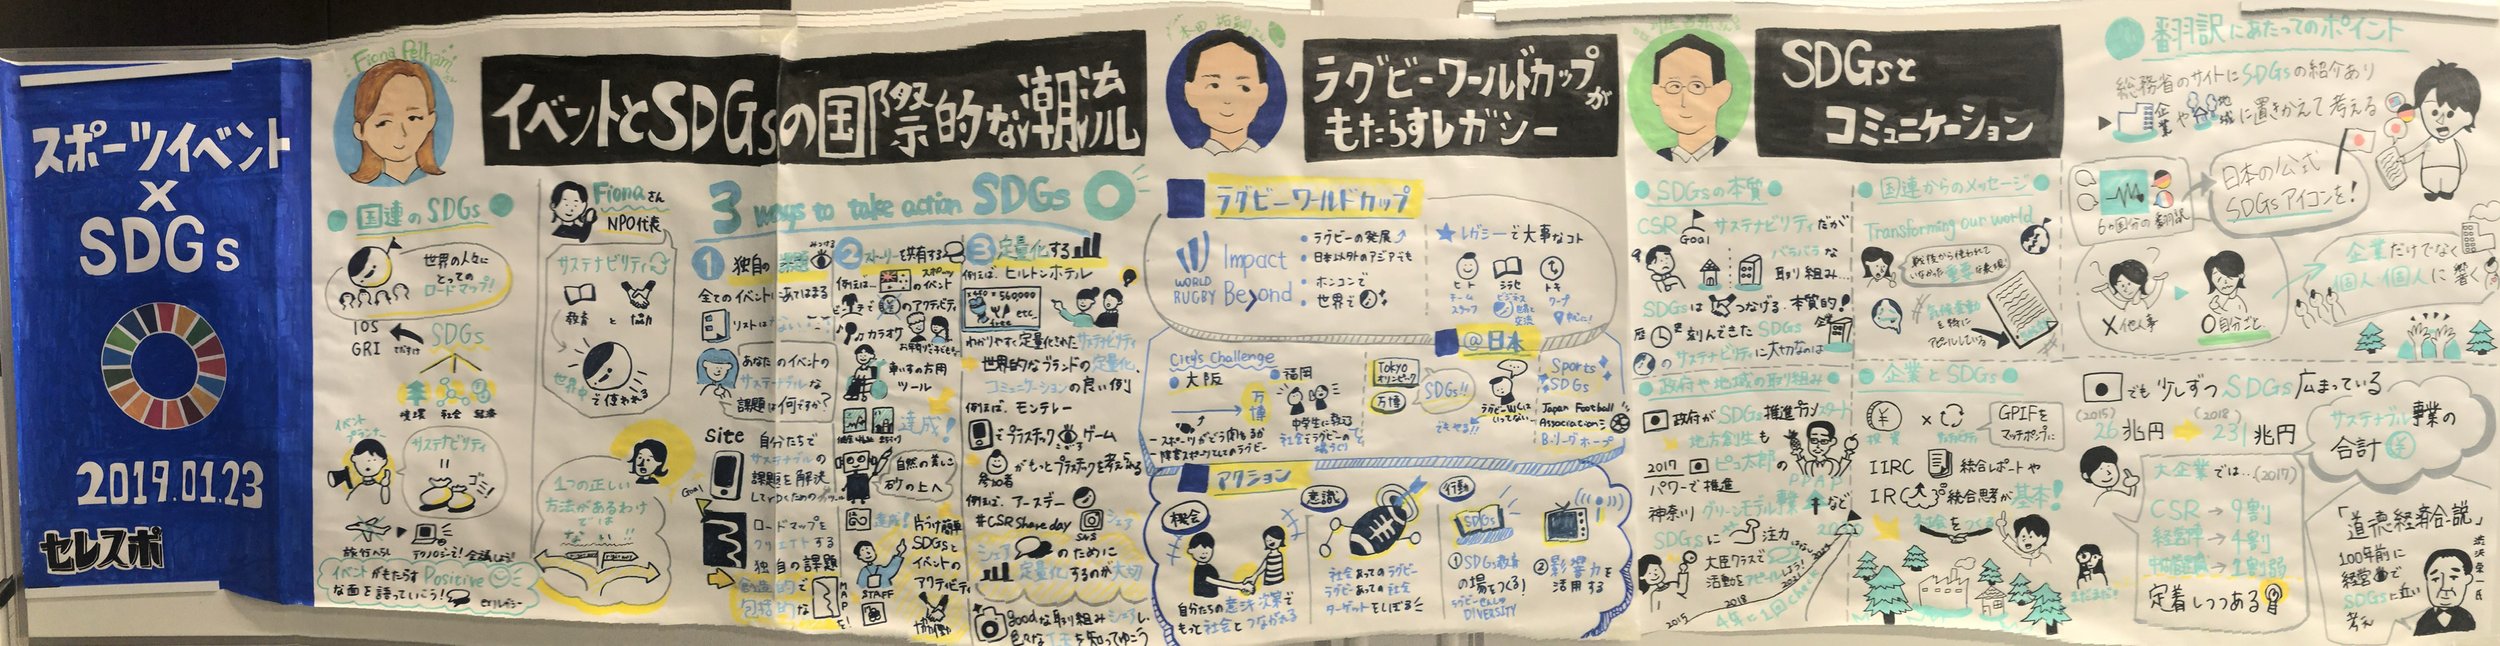 スポーツイベント
×
SDGs
2019.01.23
セレスポ
Fiona Pelham
イベントとSDGsの国際的な潮流
国連のSDGs
世界の人々に
とっての
ロードマップ!
IOS
GRI
SDGs
環境 社会 経済
イベント
プランナー
サステナビリティ
||
ゴミ!
イベントがもたらすPositive
な面を語っていこう!
Fionaさん
NPO代表
サステナビリティ
教育 と 協力
世界中
で使われる
1つの正しい
方法があるわけ
では
ない!!
3 ways to take action SDGs
1 独自の課題
全てのイベントにあてはまる
リストはない
あなたのイベントの
サステナブルな
課題は何ですか?
site
自分たちで
サステナブルの
課題を解決
Goal
ロードマップを
クリエイトする
独自の課題
創造的で
包括的な
MAP
を!
2 ストーリーを共有する
例えば… スポーツ
のイベント
のアクティビティ
カラオケ
車いすの方用
ツール
達成!
自然の美しさ
砂の上へ
達成!
片づけ簡単
SDGsと
イベントの
アクティビティ
STAFF
協働
3 定量化する
例えば、ヒルトンホテル
=560,000
etc.
free
わかりやすく定量化されたサステナビリティ
世界的なブランドの定量化、
コミュニケーションの良い例
例えば、モンテレー
でプラスチック ゲーム
参加者
がもっとプラスチックを考えられる
例えば、アースデー
#CSRshareday
シェア
SNS
シェア のために
定量化するのが大切
goodな取り組みシェアし、
色々な を知ってゆこう
ラグビーワールドカップが
もたらすレガシー
ラグビーワールドカップ
WORLD
RUGBY
Impact
Beyond
・ラグビーの発展
・日本以外のアジアでも
・ホンコンで
世界で
★レガシーで大事なコト
ヒト
チーム
スタッフ
トキ
@日本
City's Challenge
・大阪
万博
・福岡
中学生に教える
Tokyo
オリンピック
万博
SDGs!!
でもやる!!
Sports
SDGs
Japan Football
Association
B.リーグホープ
アクション
機会
自分たちの意識次第で
もっと社会とつながれる
意識
社会あってのラグビー
ラグビーあっての社会
ターゲットをしぼる
行動
SDGs
①SDGs教育
の場をつくる!
DIVERSITY
②影響力を
活用する
SDGsと
コミュニケーション
SDGsの本質
CSR
Goal
サステナビリティだが
バラバラな
取り組み…
SDGsは つなげる。本質的!
歴 刻んできた SDGs
のサステナビリティに大切なのは
国連からのメッセージ
Transforming our world
戦後から使われて
いなかった重要な表現!
#気候変動
を特に
アピールしている
政府や地域の取り組み
政府がSDGs推進プランスタート
地方創生も
2017 ピコ太郎の
パワーで推進
PPAP
神奈川 グリーンモデル事業 など
SDGsに 注力
大臣クラスで
活動をアピールしよう!
2015
2018
2021
2030
4年に1回check
企業とSDGs
投資
GPIFを
マッチポンプに
IIRC 統合レポートや
IRC 統合思考が基本!
社会をつくる
翻訳にあたってのポイント
総務省のサイトにSDGsの紹介あり
企業や 地域に置きかえて考える
6カ国分の翻訳
日本の公式
SDGsアイコンを!
×他人事
○自分ごと
企業だけでなく
個人個人に響く
でも少しずつSDGs広まっている
(2015) (2018)
26兆円 231兆円
サステナブル事業の
合計
大企業では…(2017)
CSR→9割
経営陣→4割
中間管理職→1割弱
定着しつつある
まだまだ!
「道徳経済合一説」
100年前に
経営 で
SDGsに近い
考え
渋沢栄一氏